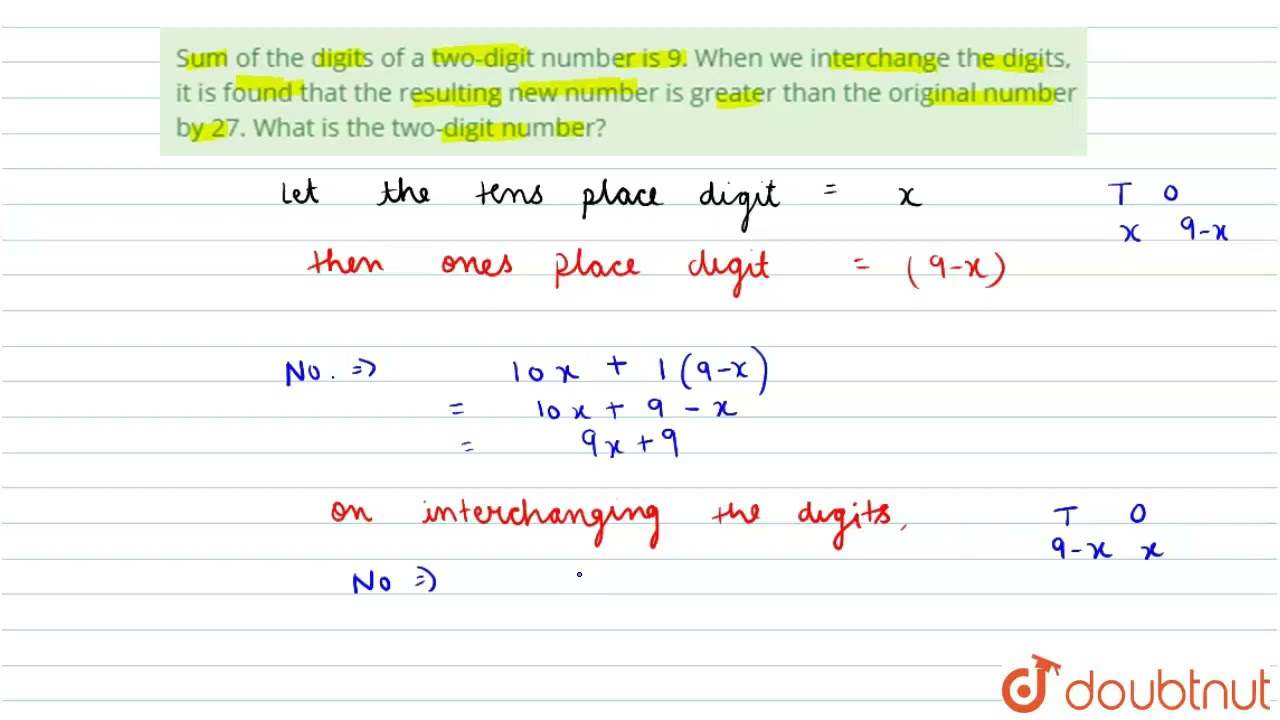 Sum of the digits of a two-digit number is 9. When we interchange the digits,
it is found that the resulting new number is greater than the original number
by 27. What is the two-digit number?
Let the tens place digit = x
T O
x 9-x
then ones place digit = (9-x)
No. => 10x + 1(9-x)
= 10x + 9 - x
= 9x + 9
on interchanging the digits,
T O
9-x x
No =>
doubtnut